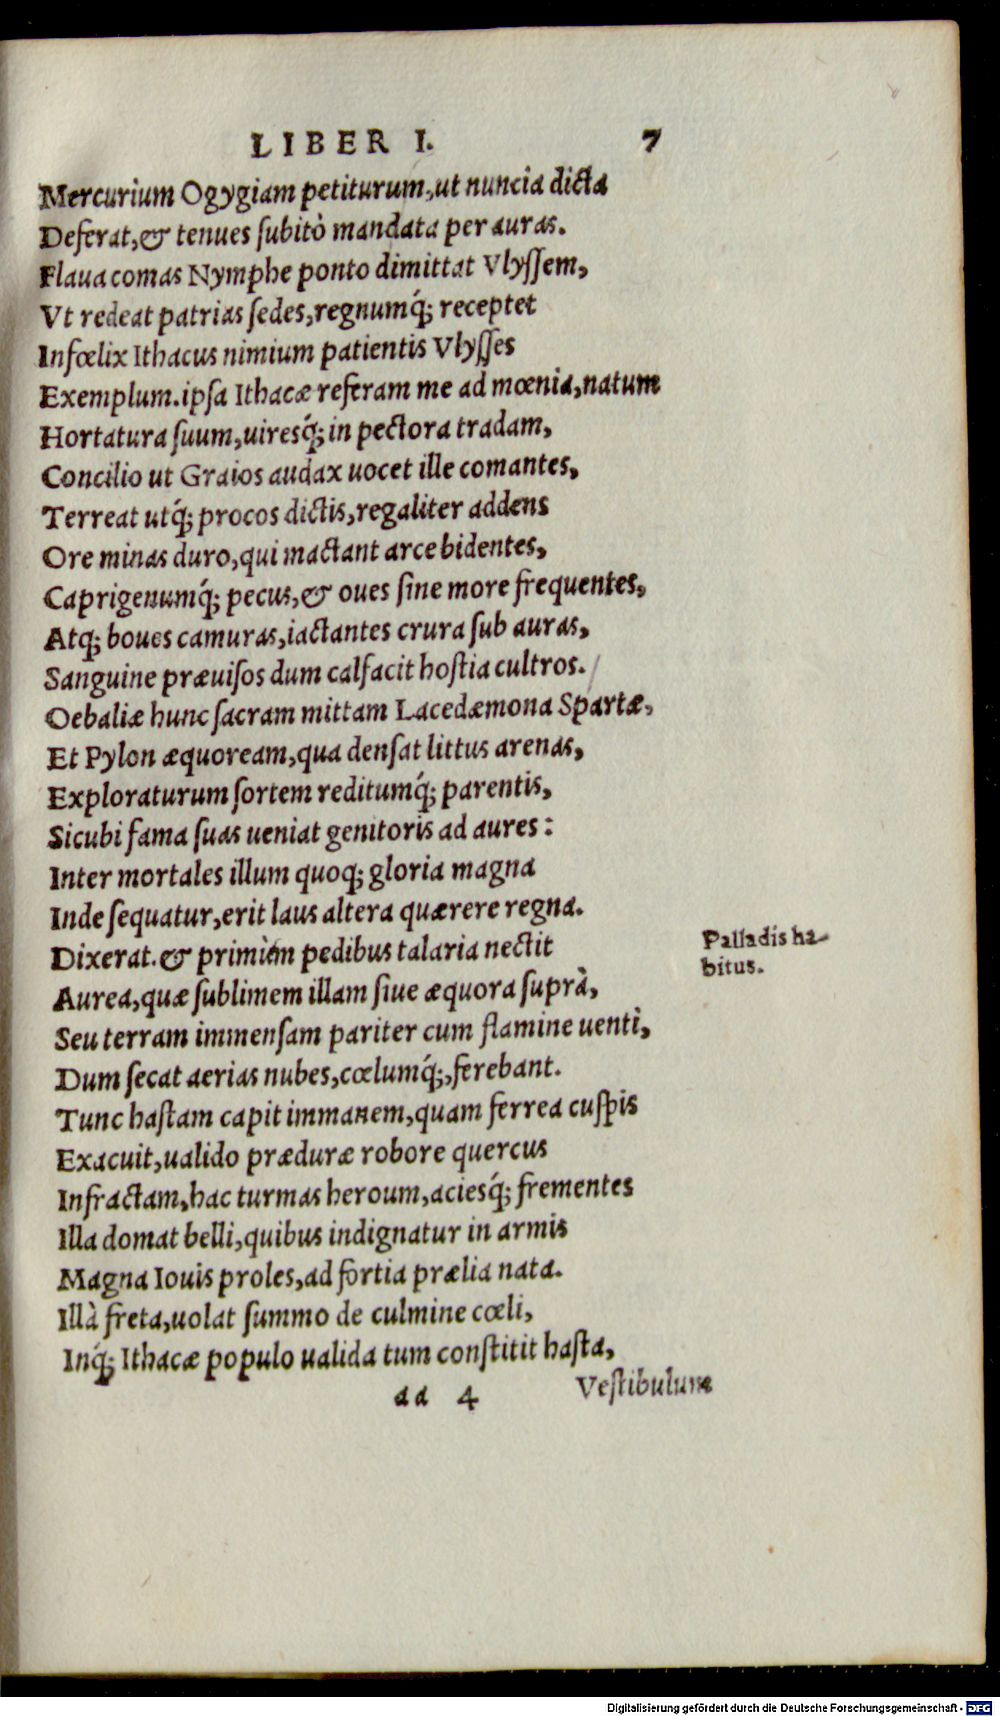 LIBER I. 7
Mercurium Ogygiam petiturum, ut nuncia dicta
Deferat, & tenues ſubitò mandata per auras.
Flaua comas Nymphe ponto dimittat Vlyſſem,
Vt redeat patrias ſedes, regnumq́; receptet
Infœlix Ithacus nimium patientis Vlyſſes
Exemplum. ipſa Ithacæ referam me ad mœnia, natum
Hortatura ſuum, uiresq́; in pectora tradam,
Concilio ut Graios audax uocet ille comantes,
Terreat utq́; procos dictis, regaliter addens
Ore minas duro, qui mactant arce bidentes,
Caprigenumq́; pecus, & oues ſine more frequentes,
Atq; boues camuras, iactantes crura ſub auras,
Sanguine præuiſos dum calfacit hoſtia cultros.
Oebaliæ hunc ſacram mittam Lacedæmona Spartæ,
Et Pylon æquoream, qua denſat littus arenas,
Exploraturum ſortem reditumq́; parentis,
Sicubi fama ſuas ueniat genitoris ad aures:
Inter mortales illum quoq; gloria magna
Inde ſequatur, erit laus altera quærere regna.
Dixerat. & primùm pedibus talaria nectit
Palladis ha-
bitus.
Aurea, quæ ſublimem illam ſiue æquora ſuprà,
Seu terram immenſam pariter cum flamine uenti,
Dum ſecat aerias nubes, cœlumq́;, ferebant.
Tunc haſtam capit immanem, quam ferrea cuſpis
Exacuit, ualido præduræ robore quercus
Infractam, hac turmas heroum, aciesq́; frementes
Illa domat belli, quibus indignatur in armis
Magna Iouis proles, ad fortia prælia nata.
Illà freta, uolat ſummo de culmine cœli,
Inq́; Ithacæ populo ualida tum conſtitit haſta,
aa 4 Veſtibulum
Digitalisierung gefördert durch die Deutsche Forschungsgemeinschaft - DFG